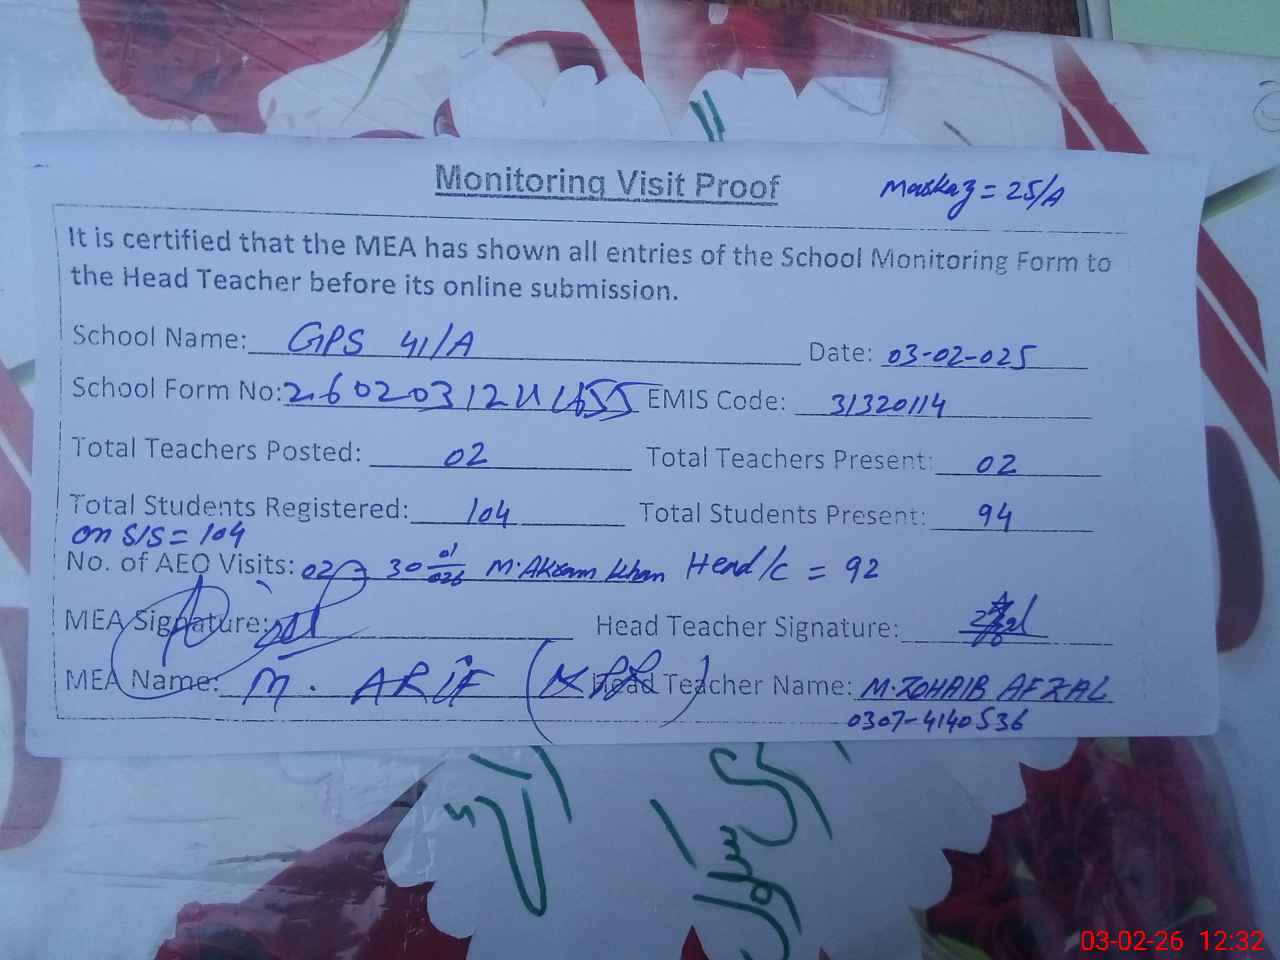 Monitoring Visit Proof
Markaz = 25/A
It is certified that the MEA has shown all entries of the School Monitoring Form to
the Head Teacher before its online submission.
School Name: GPS 41/A Date: 03-02-025
School Form No: EMIS Code: 31320114
Total Teachers Posted: 02 Total Teachers Present: 02
Total Students Registered: 104 Total Students Present: 94
on S/S = 104
No. of AEO Visits: 02 30 01/026 M. Akram Khan Head/c = 92
MEA Signature: Head Teacher Signature:
MEA Name: M. ARIF Head Teacher Name: M. ZOHAIB AFZAL
0307-4140536
03-02-26 12:32